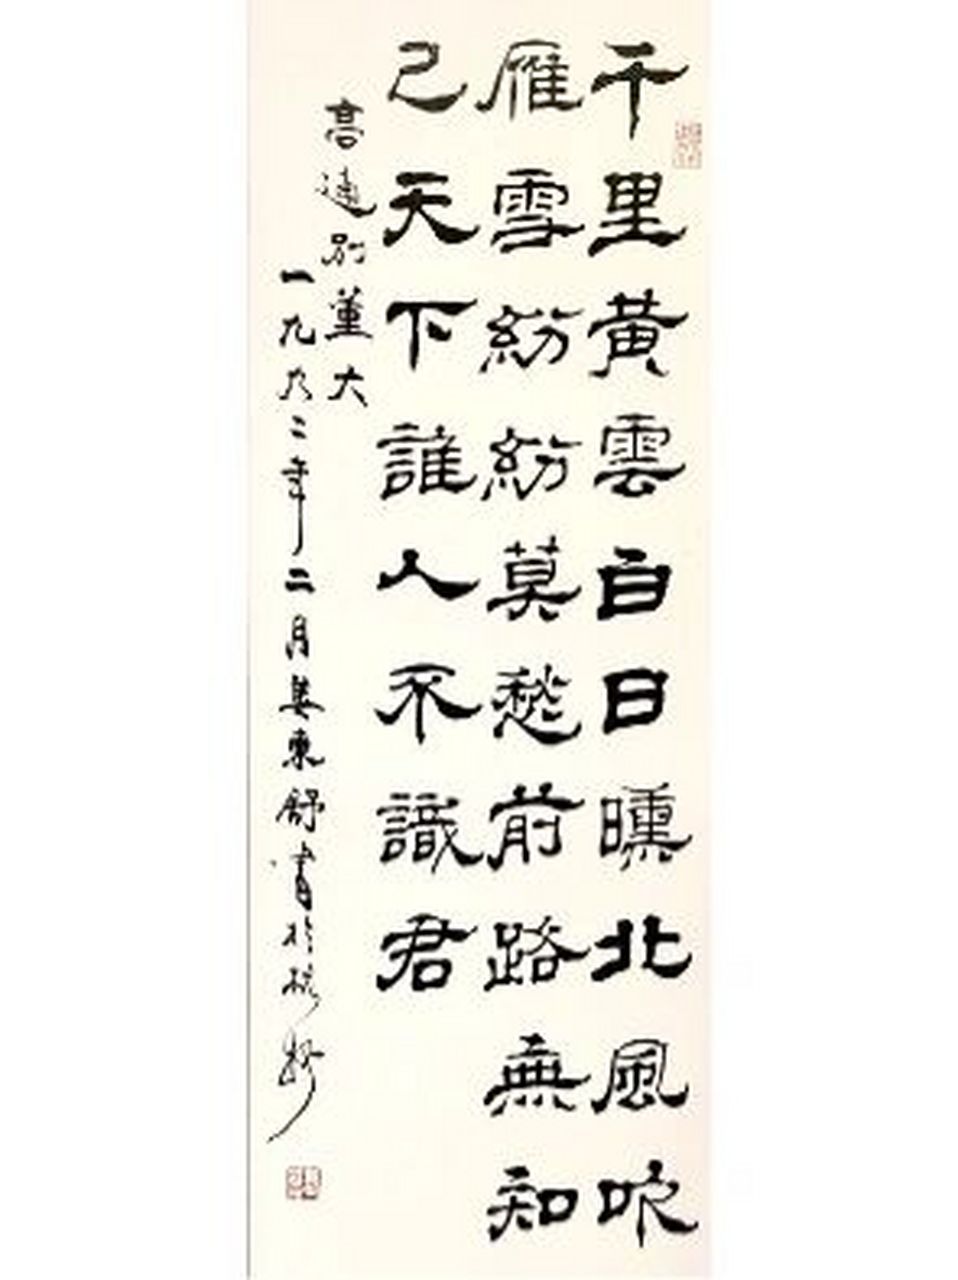 千里黃雲白日曛北風吹
雁雪紛紛莫愁前路無知
己天下誰人不識君
高適別董大
一九九二年二月婁東舒書於杭